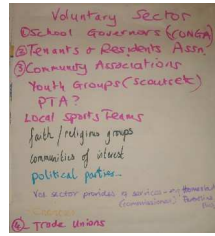 Voluntary Sector
① School Governors (
② Tenants & Residents Assn.
③ Community Associations
Youth Groups (scouts etc)
PTA?
Local Sports Teams
faith / religious groups
communities of interest
political parties...
Vol sector provides services
④ Trade Unions